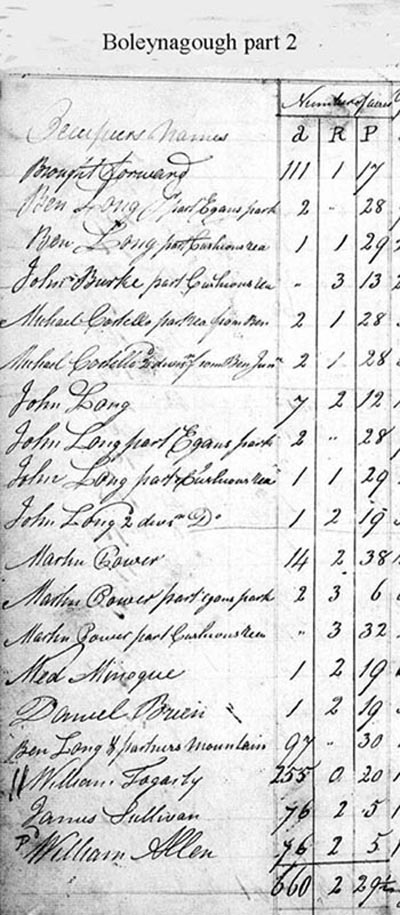 Boleynagough part 2
Number of acres
Occupiers Names a R P
Brought forward 111 1 17
Ben Long Jr part Egans park 2 " 28
Ben Long part Cushions rea 1 1 29
John Burke part Cushions rea " 3 13
Michael Costello part rea from Ben 2 1 28
Michael Costello 2 divisn from Ben Junr 2 1 28
John Long 7 2 12
John Long part Egans park 2 " 28
John Long part Cushions rea 1 1 29
John Long 2 divsn Do 1 2 19
Martin Power 14 2 38
Martin Power part egans park 2 3 6
Martin Power part Cushions rea " 3 32
Med Minogue 1 2 19
Daniel Brien 1 2 19
Ben Long & partners Mountain 97 " 30
William Fogarty 255 0 20
James Sullivan 76 2 5
William Allen 76 2 5
660 2 29½